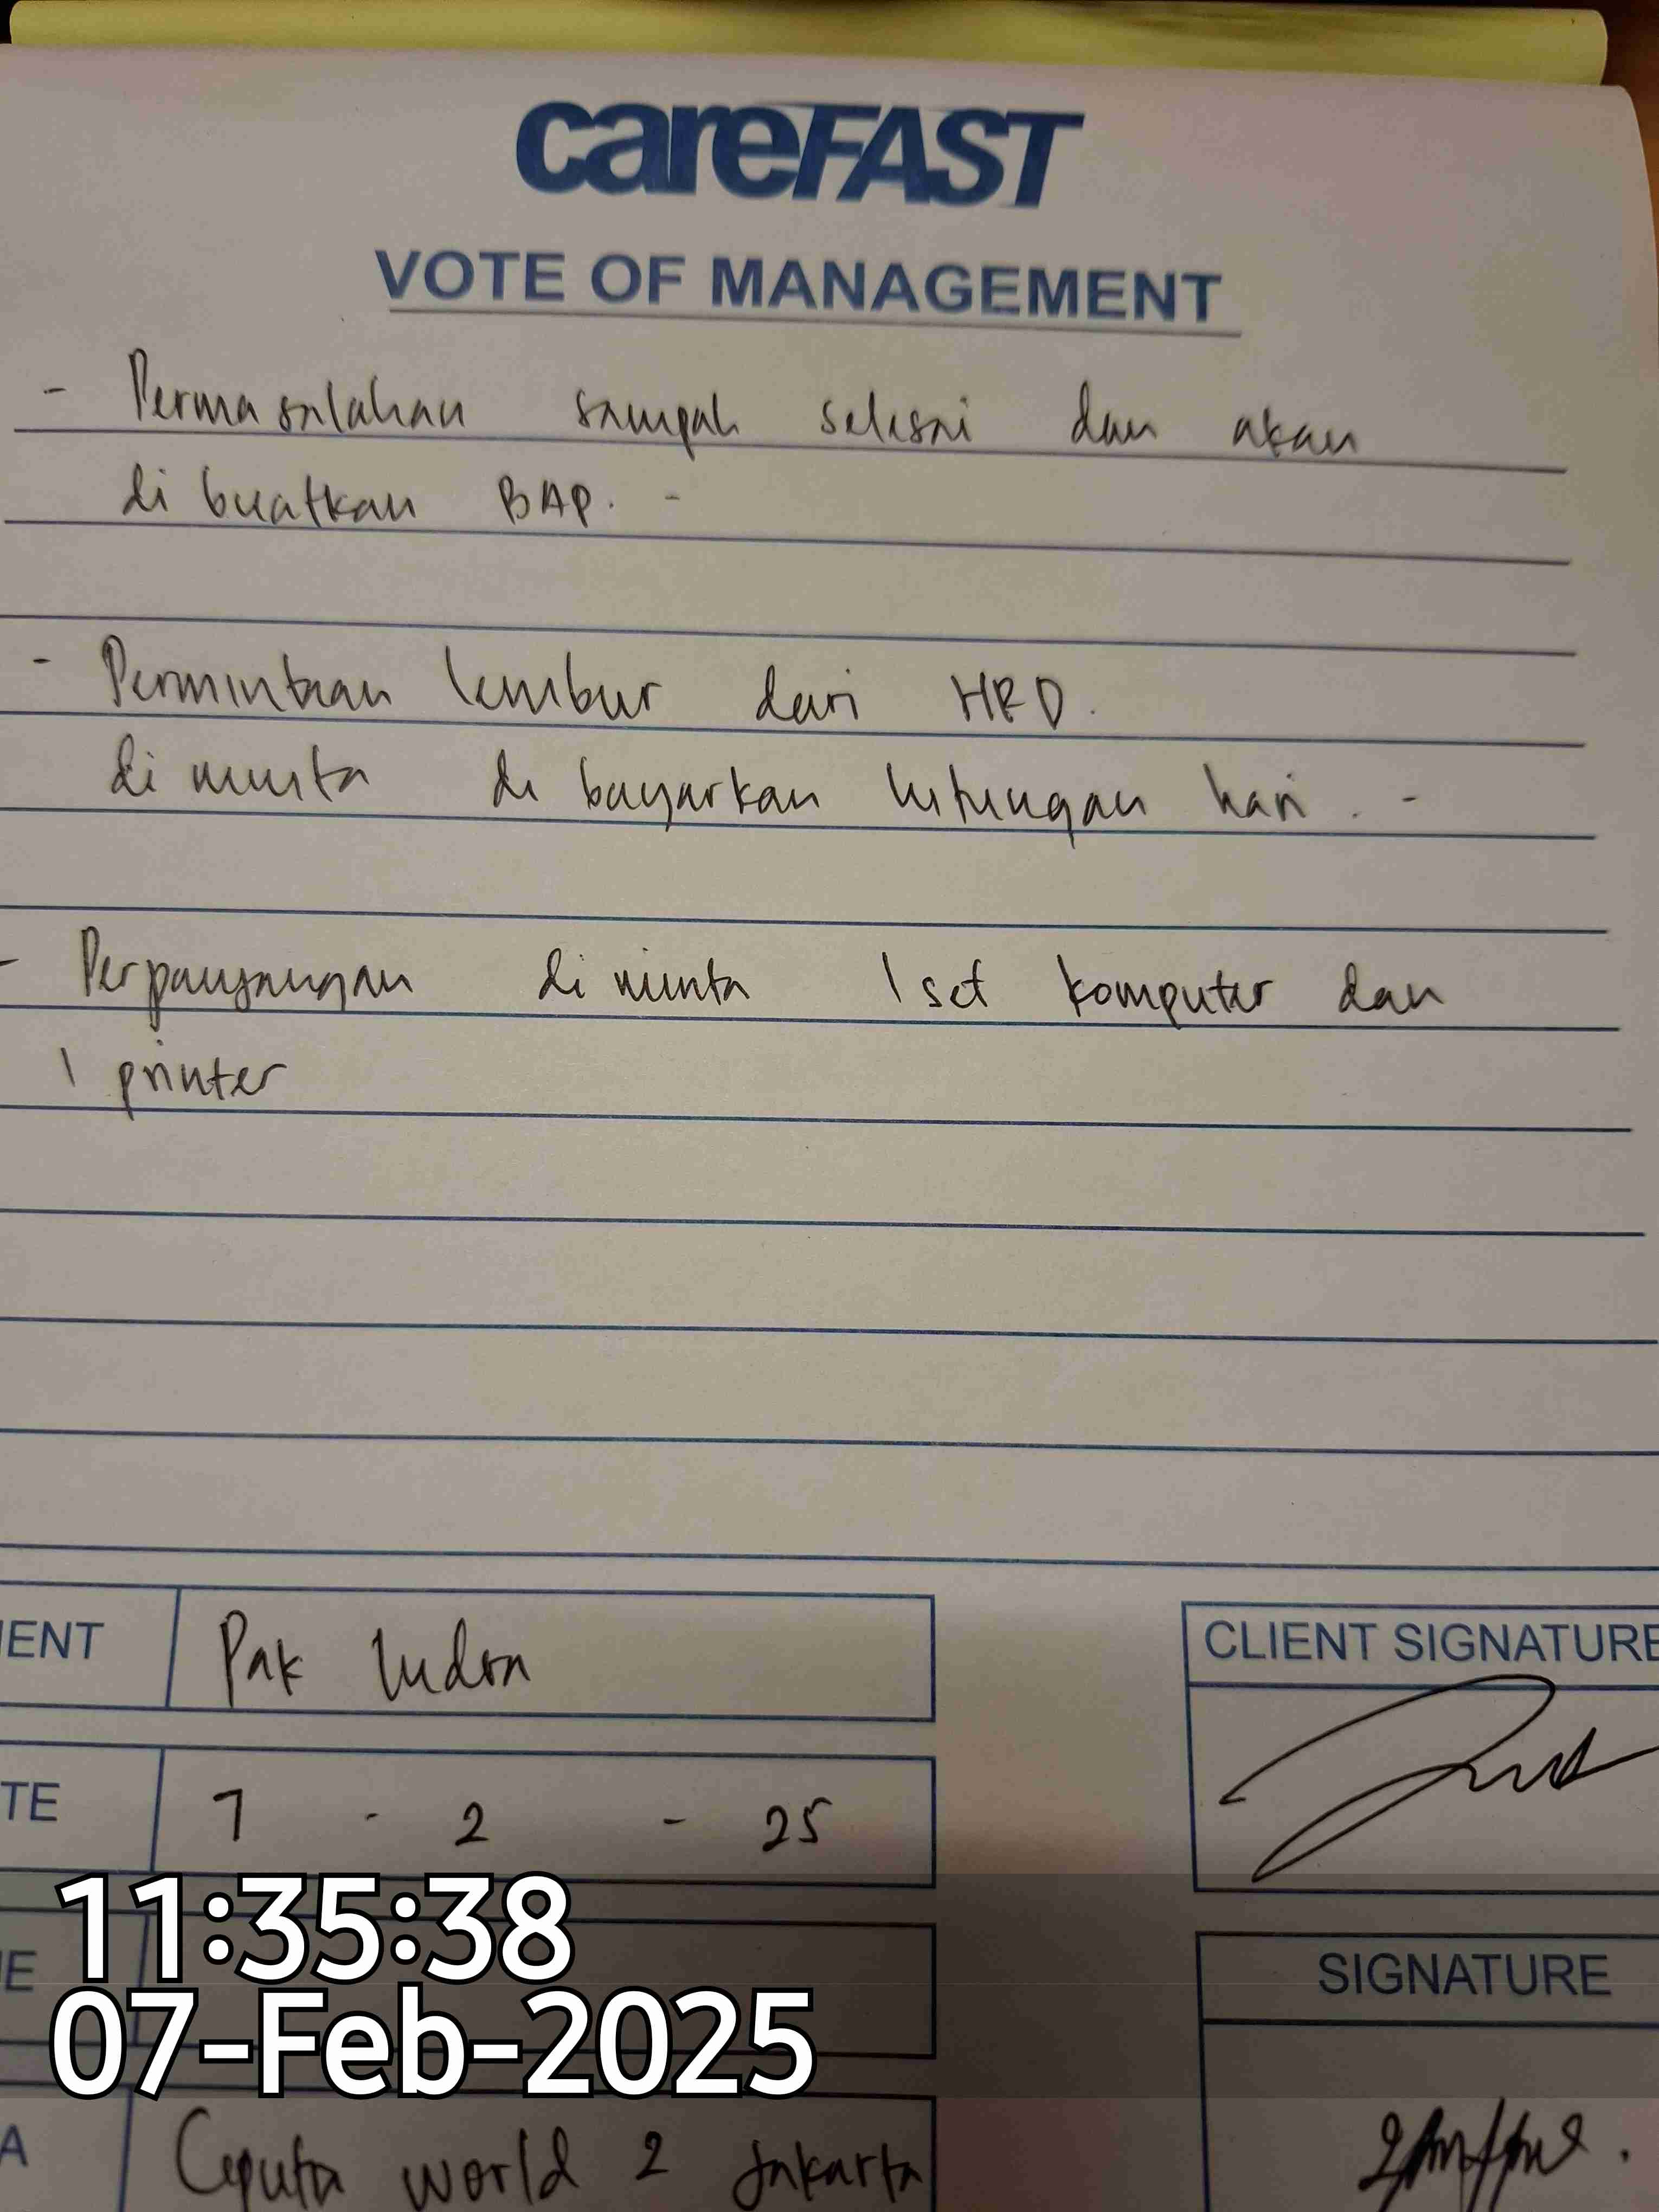 careFAST
VOTE OF MANAGEMENT
- Permasalahan sampah selesai dan akan
di buatkan BAP. -
- Permintaan lembur dari HRD.
di minta di bayarkan hitungan hari. -
- Perpanjangan di minta 1 set komputer dan
1 printer
IENT Pak Indra
CLIENT SIGNATURE
TE 7 - 2 - 25
11:35:38
E
SIGNATURE
07-Feb-2025
A Ciputra world 2 Jakarta